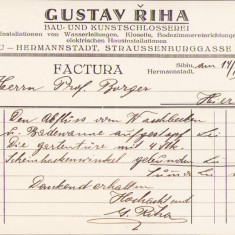 GUSTAV ŘIHA
BAU- UND KUNSTSCHLOSSEREI
Installationen von Wasserleitungen, Klosetts, Badezimmereinrichtungen
elektrischen Hausinstallationen
U – HERMANNSTADT, STRAUSSENBURGGASSE
FACTURA
Sibiu, am 14/
Hermannstadt,
Herrn Prof. Burger
Hier
Den Abfluss vom Waschbecken
u. Badewanne aufgestopft Lei
Die gartentüre mit 4 Stk.
Scheinhackenwinkel gebunden Lei
Summe Lei
Dankend erhalten
Hochachtend
G. Riha